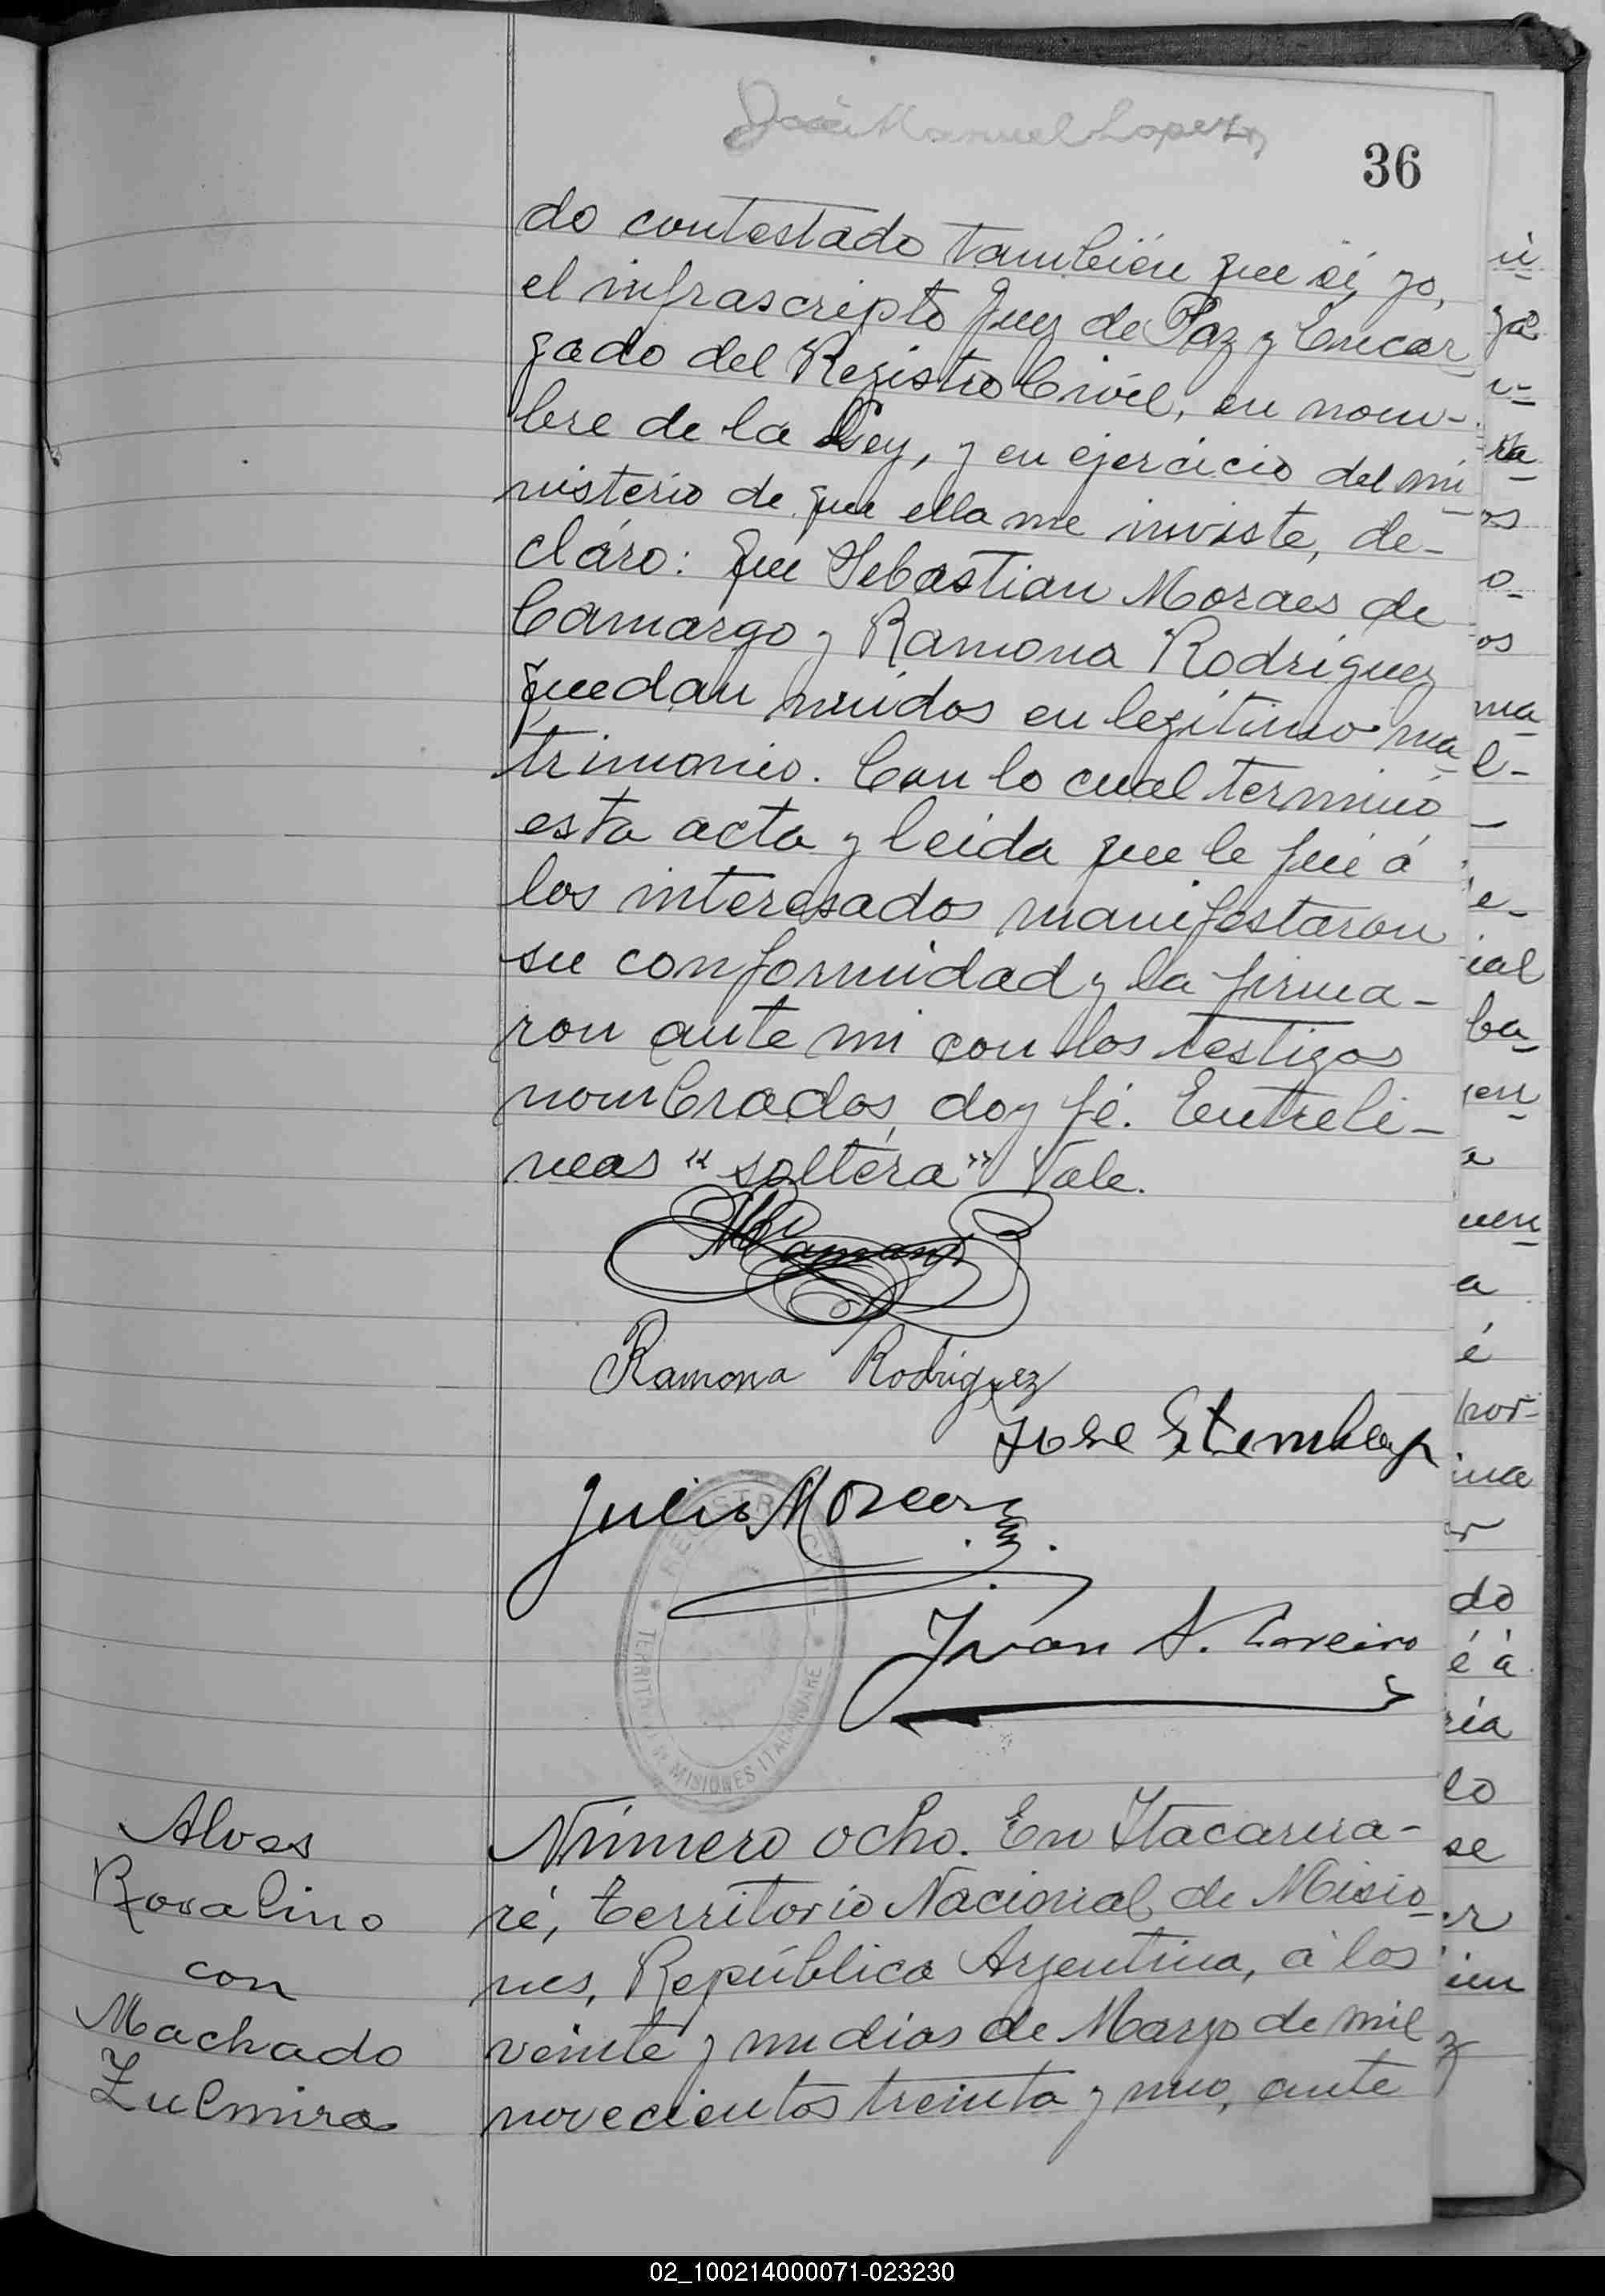 José Manuel Lopez
36
do contestado también que sí, yo,
el infrascripto Juez de Paz y Encar
gado del Registro Civil, en nom-
bre de la Ley, y en ejercicio del mi
nisterio de que ella me inviste, de-
claro: Que Sebastian Moraes de
Camargo y Ramona Rodriguez
quedan unidos en legitimo ma
trimonio. Con lo cual terminó
esta acta y leida que le fué á
los interesados manifestaron
su conformidad y la firma-
ron ante mi con los testigos
nombrados, doy fé. Entreli-
neas "soltera" Vale.
Ramona Rodriguez
Jose
Julio
Juan A.
REGISTRO CIVIL
TERRITORIO MISIONES ITACARUARE
Alves
Rosalino
con
Machado
Zulmira
Número ocho. En Itacarua-
ré, territorio Nacional de Misio
nes, República Argentina, á los
veinte y un dias de Marzo de mil
novecientos treinta y uno, ante
02_100214000071-023230